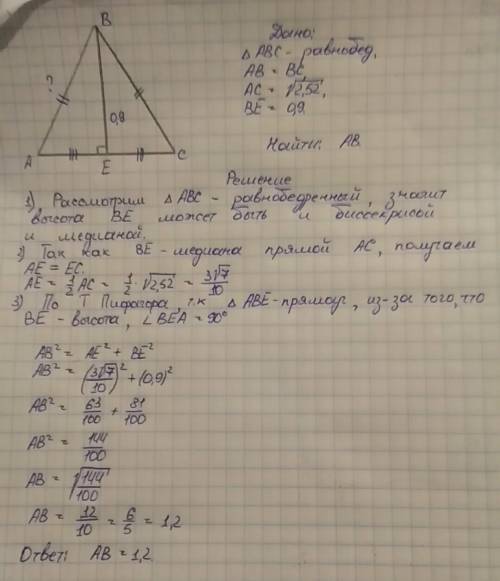 B
?
0,9
A
E
C
Дано:
△ABC - равнобед.
AB = BC,
AC = √2,52,
BE = 0,9.
Найти: AB.
Решение
1) Рассмотрим △ABC - равнобедренный, значит
высота BE может быть и биссекрисой
и медианой.
2) Так как BE - медиана прямой AC, получаем
AE = EC,
AE = 1/2 AC = 1/2 · √2,52 = 3√7/10
3) По Т Пифагора, т.к △ABE - прямоуг, из-за того, что
BE - высота, ∠BEA = 90°
AB² = AE² + BE²
AB² = (3√7/10)² + (0,9)²
AB² = 63/100 + 81/100
AB² = 144/100
AB = √144/100
AB = 12/10 = 6/5 = 1,2
Ответ: AB = 1,2.